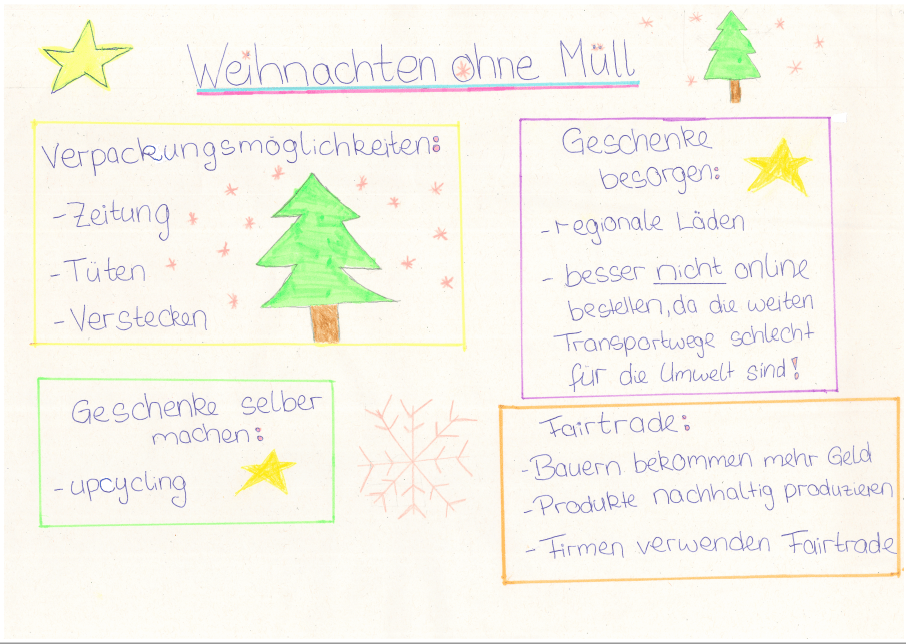 Weihnachten ohne Müll
Verpackungsmöglichkeiten:
-Zeitung
-Tüten
-Verstecken
Geschenke
besorgen:
-regionale Läden
- besser nicht online
bestellen, da die weiten
Transportwege schlecht
für die Umwelt sind!
Geschenke selber
machen:
-upcycling
Fairtrade:
-Bauern bekommen mehr Geld
-Produkte nachhaltig produzieren
- Firmen verwenden Fairtrade